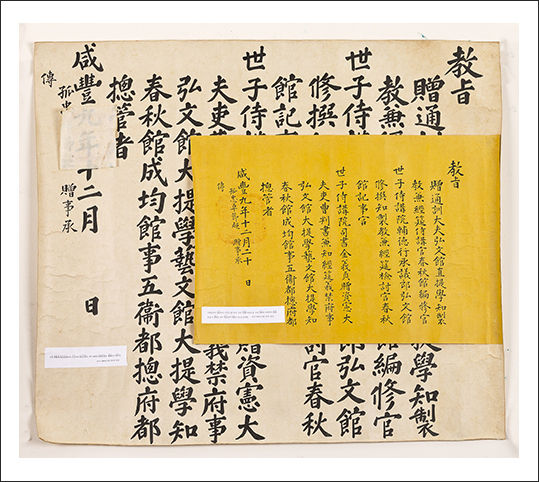 敎旨
贈通
提學知製
敎兼
編修官
世子侍講
弘文館
修撰
討官春秋
館記事
世子侍
贈資憲大
夫吏
義禁府事
弘文館大提學藝文館大提學知
春秋館成均館事五衛都摠府都
摠管者
咸豐九年十二月 日
孤忠
贈事承
傳
敎旨
贈通訓大夫弘文館直提學知製
敎兼經筵侍講官春秋館編修官
世子侍講院輔德行承議郎弘文館
修撰知製敎兼經筵檢討官春秋
館記事官
世子侍講院司書金義貞贈資憲大
夫吏曹判書兼知經筵義禁府事
弘文館大提學藝文館大提學知
春秋館成均館事五衛都摠府都
摠管者
咸豐九年十二月二十 日
孤忠卓節 贈事承
傳